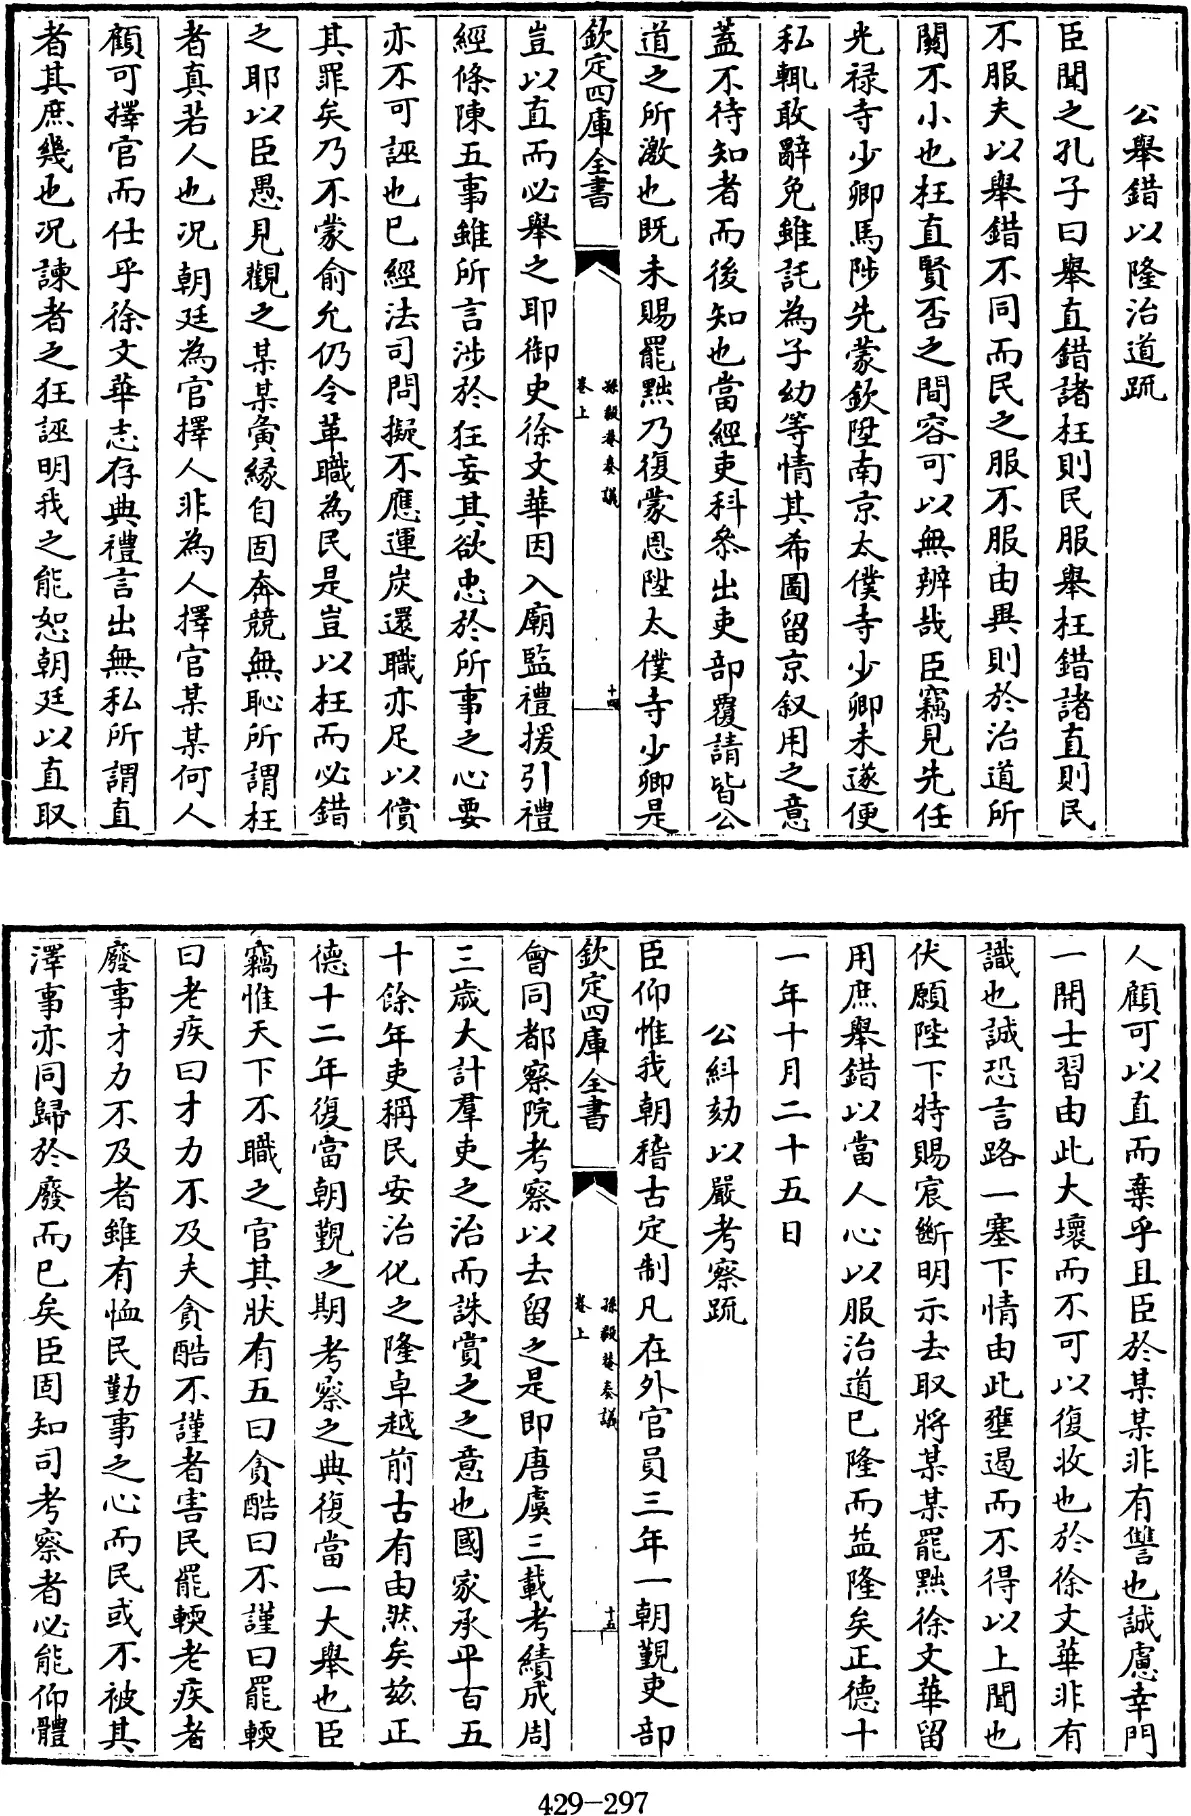 公舉錯以隆治道疏
臣聞之孔子曰舉直錯諸枉則民服舉枉錯諸直則民
不服夫以舉錯不同而民之服不服由異則於治道所
關不小也枉直賢否之間容可以無辨哉臣竊見先任
光禄寺少卿馬陟先蒙欽陞南京太僕寺少卿未遂便
私輒敢辭免雖託為子幼等情其希圖留京叙用之意
蓋不待知者而後知也當經吏科叅出吏部覆請皆公
道之所激也既未賜罷黜乃復蒙恩陞太僕寺少卿是
欽定四庫全書
孫毅菴奏議
卷上
十四
豈以直而必舉之耶御史徐文華因入廟監禮援引禮
經條陳五事雖所言涉於狂妄其欲忠於所事之心要
亦不可誣也巳經法司問擬不應運炭還職亦足以償
其罪矣乃不蒙俞允仍令革職為民是豈以枉而必錯
之耶以臣愚見觀之某某夤緣自固奔競無恥所謂枉
者真若人也况朝廷為官擇人非為人擇官某某何人
顧可擇官而仕乎徐文華志存典禮言出無私所謂直
者其庶幾也况諫者之狂誣明我之能恕朝廷以直取
人顧可以直而棄乎且臣於某某非有讐也誠慮幸門
一開士習由此大壞而不可以復收也於徐文華非有
識也誠恐言路一塞下情由此壅遏而不得以上聞也
伏願陛下特賜宸斷明示去取將某某罷黜徐文華留
用庶舉錯以當人心以服治道巳隆而益隆矣正德十
一年十月二十五日
公糾劾以嚴考察疏
臣仰惟我朝稽古定制凡在外官員三年一朝覲吏部
欽定四庫全書
孫毅菴奏議
卷上
十五
會同都察院考察以去留之是即唐虞三載考績成周
三歲大計羣吏之治而誅賞之之意也國家承平百五
十餘年吏稱民安治化之隆卓越前古有由然矣兹正
德十二年復當朝覲之期考察之典復當一大舉也臣
竊惟天下不職之官其狀有五曰貪酷曰不謹曰罷輭
曰老疾曰才力不及夫貪酷不謹者害民罷輭老疾者
廢事才力不及者雖有恤民勤事之心而民或不被其
澤事亦同歸於廢而巳矣臣固知司考察者必能仰體
429-297